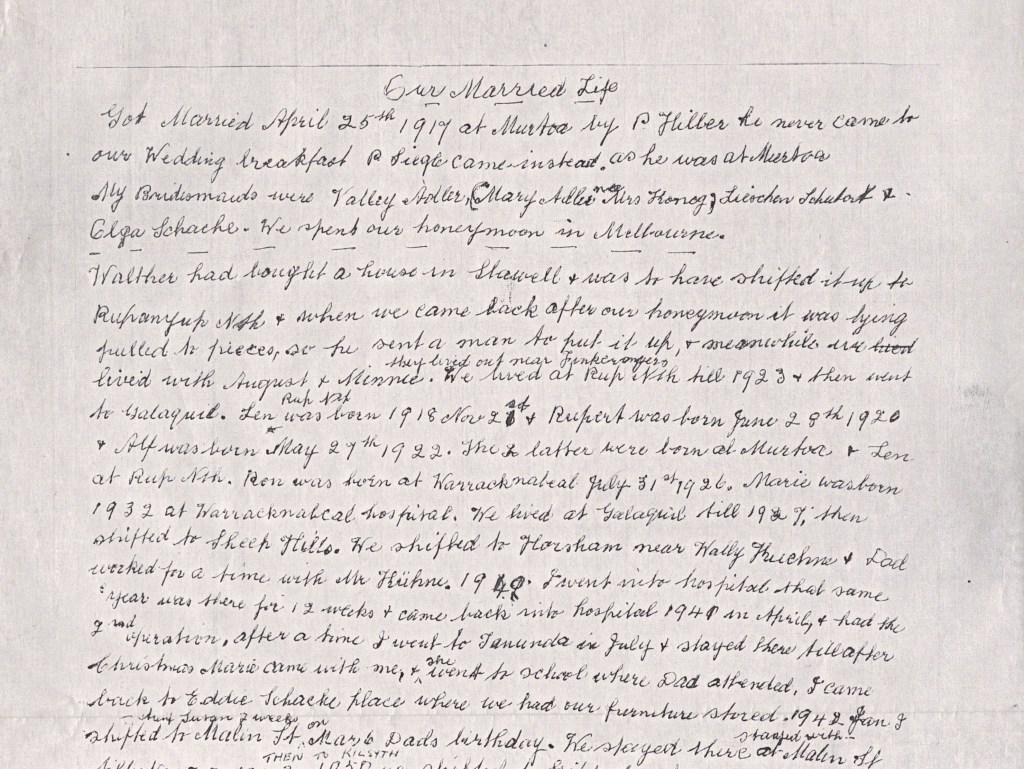 Our Married Life
Got Married April 25th 1917 at Murtoa by P Hiller he never came to
our Wedding breakfast P Siegle came instead, as he was at Murtoa
My Bridesmaids were Valley Adler, (Mary Adler now Mrs Honeg) Lieschen Schubert &
Elga Schache. We spent our honeymoon in Melbourne.
Walther had bought a house in Stawell & was to have shifted it up to
Rupanyup Nth & when we came back after our honeymoon it was lying
pulled to pieces, so he sent a man to put it up, & meanwhile we lived
they lived out near
lived with August & Minnie. We lived at Rup Nth till 1923 & then went
Rup Nth
to Galaquil. Len was born 1918 Nov 21st & Rupert was born June 28th 1920
& Alf was born May 27th 1922. The 2 latter were born at Murtoa & Len
at Rup Nth. Ron was born at Warracknabeal July 31st 1926. Marie was born
1932 at Warracknabeal hospital. We lived at Galaquil till 1927, then
shifted to Sheep Hills. We shifted to Horsham near Wally Kuehne & Dad
worked for a time with Mr Kühne. 19 I went into hospital that same
year was there for 12 weeks & came back into hospital 1941 in April, & had the
2nd operation, after a time I went to Tanunda in July & stayed there till after
Christmas Marie came with me, & she went to school where Dad attended. I came
back to Eddie Schache place where we had our furniture stored. 1942 Jan I
Aunt Susan 3 weeks stayed with
shifted to Malin St, on Mar 6 Dads birthday. We stayed there at Malin St
THEN TO KILSYTH
1950